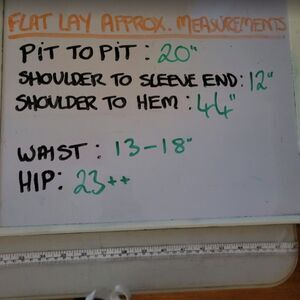 FLAT LAY APPROX. MEASUREMENTS
PIT TO PIT : 20"
SHOULDER TO SLEEVE END: 12"
SHOULDER TO HEM: 44"
WAIST : 13-18"
HIP: 23++